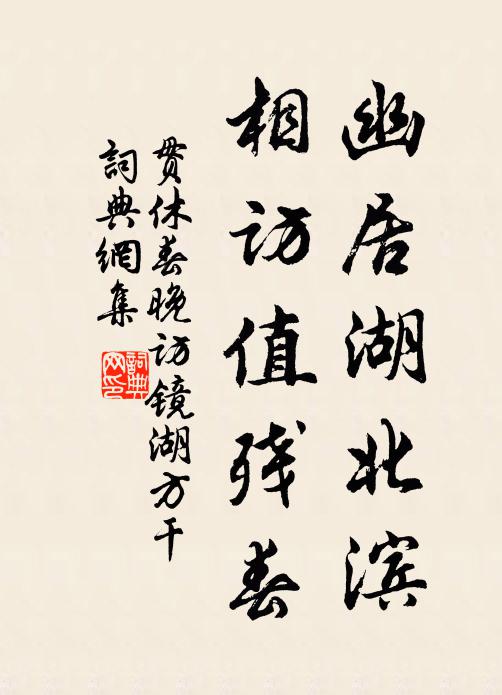 幽居湖北滨
相访值残春
贯休春晚访镜湖方干
詞典網集
詞典
网印